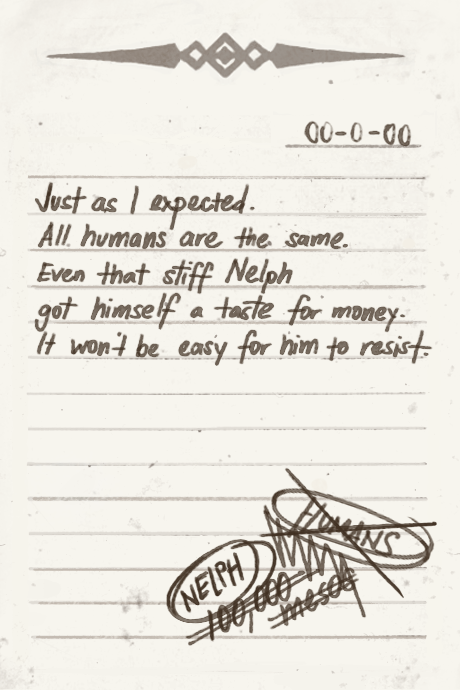 00-0-00
Just as I expected.
All humans are the same.
Even that stiff Nelph
got himself a taste for money.
It won't be easy for him to resist.
HUMANS
NELPH
100,000
mesos